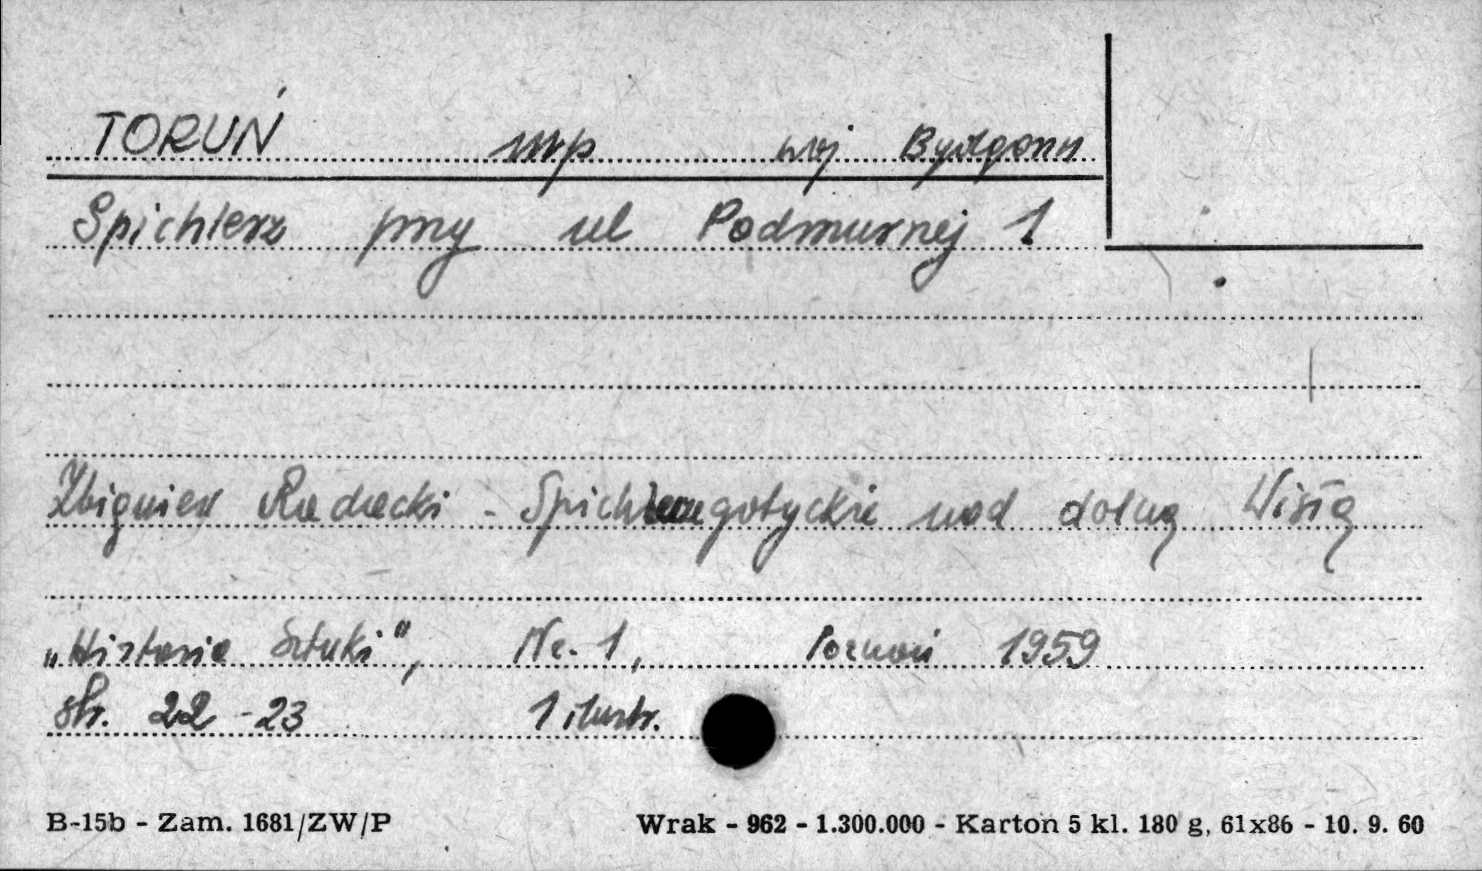 TORUŃ mp woj Bydgoszcz
Spichlerz przy ul Podmurnej 1
Zbigniew Radacki - Spichlerze gotyckie nad dolną Wisłą
„Historia Sztuki", Nr. 1, Poznań 1959
str. 22-23 1 ilustr.
B-15b - Zam. 1681/ZW/P Wrak - 962 - 1.300.000 - Karton 5 kl. 180 g, 61x86 - 10. 9. 60